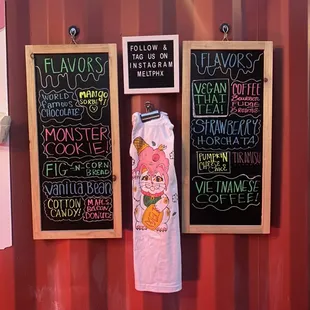 FLAVORS
WORLD
FAMOUS
CHOCOLATE!
MANGO
SORBET
MONSTER
COOKIE!
FIG-N-CORN
BREAD
Vanilla Bean
COTTON
CANDY!
MAPLE
BACON
DONUTS
FOLLOW &
TAG US ON
INSTAGRAM
MELTPHX
FLAVORS
VEGAN
THAI
TEA!
COFFEE
BOURBON
FUDGE
STRAWBERRY
HORCHATA
PUMPKIN
CHEEZ
TIRAMISU
VIETNAMESE
COFFEE!